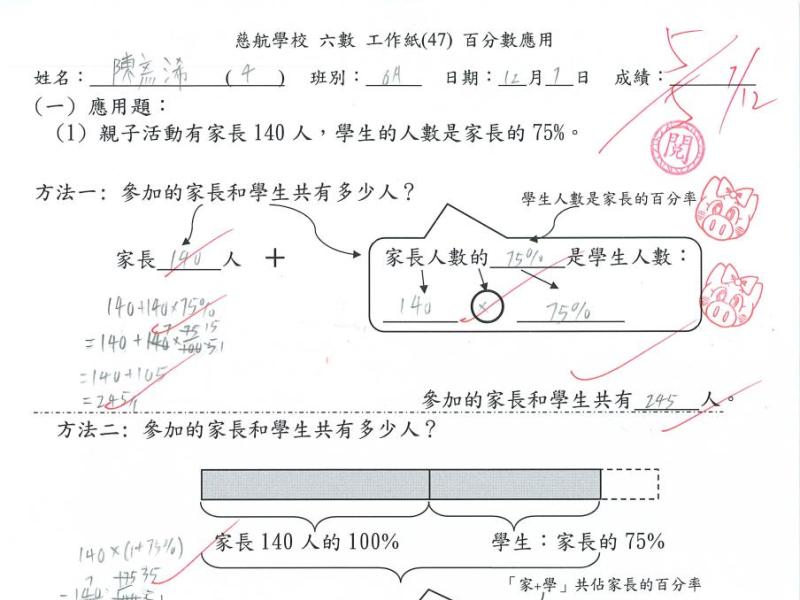 慈航學校 六數 工作紙(47) 百分數應用
姓名：陳 (4) 班別：6A 日期：12月7日 成績：5/5 7/12
(一) 應用題：
閱
(1) 親子活動有家長 140 人，學生的人數是家長的 75%。
方法一: 參加的家長和學生共有多少人？
學生人數是家長的百分率
家長 140 人 + 家長人數的 75% 是學生人數：
140 × 75%
140+140×75%
=140+140×
=140+105
=245
參加的家長和學生共有 245 人。
方法二: 參加的家長和學生共有多少人？
家長 140 人的 100% 學生：家長的 75%
140×(1+75%)
「家+學」共佔家長的百分率